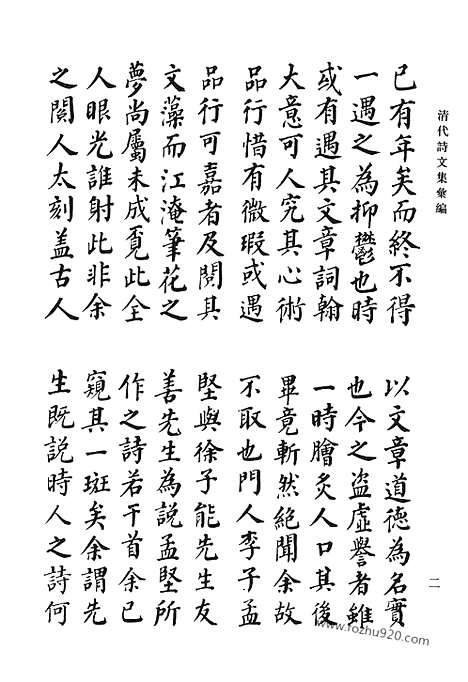 清代詩文集彙編
已有年矣而終不得
一遇之為抑鬱也時
或有遇其文章詞翰
大意可人究其心術
品行惜有微瑕或遇
品行可嘉者及閱其
文藻而江淹筆花之
夢尚屬未成覓此全
人眼光誰射此非余
之閱人太刻盖古人
以文章道德為名實
也今之盜虛譽者雖
一時膾炙人口其後
畢竟斬然絕聞余故
不取也門人李子孟
堅與徐子能先生友
善先生為說孟堅所
作之詩若干首余已
窺其一斑矣余謂先
生既說時人之詩何
二
www.fozhu920.com